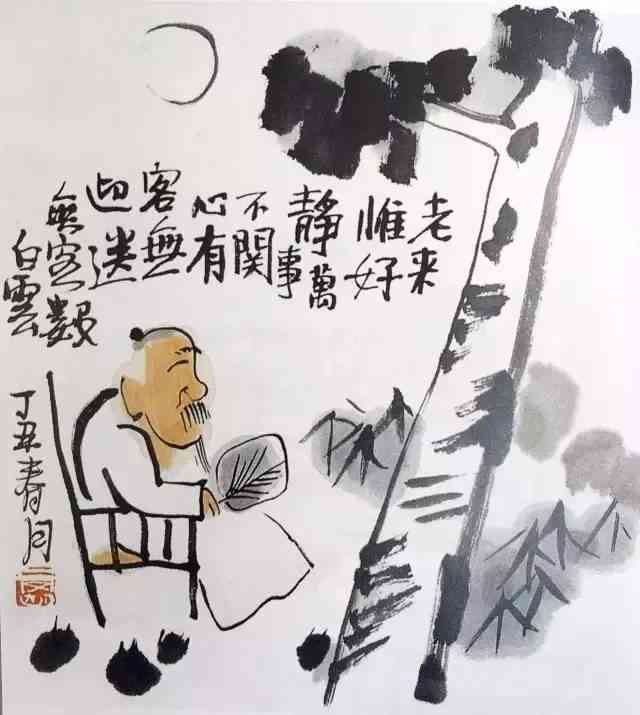 老来
惟好
靜萬事
不關
心有
客無
迎送
無客數
白雲
丁丑春月